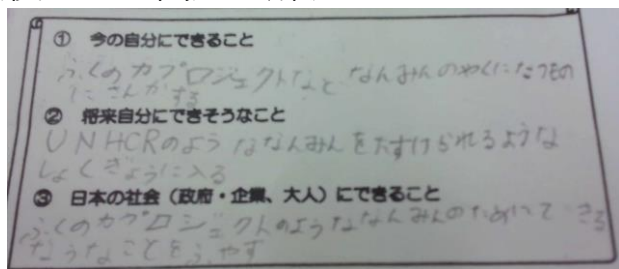 ① 今の自分にできること
ふくのカプロジェクトなど なんみんのやくにたつもの
にさんかする
② 将来自分にできそうなこと
UNHCRのような なんみんをたすけられるような
しょくぎょうに入る
③ 日本の社会（政府・企業、大人）にできること
ふくのカプロジェクトのようななんみんのためにできる
ようなことをふやす